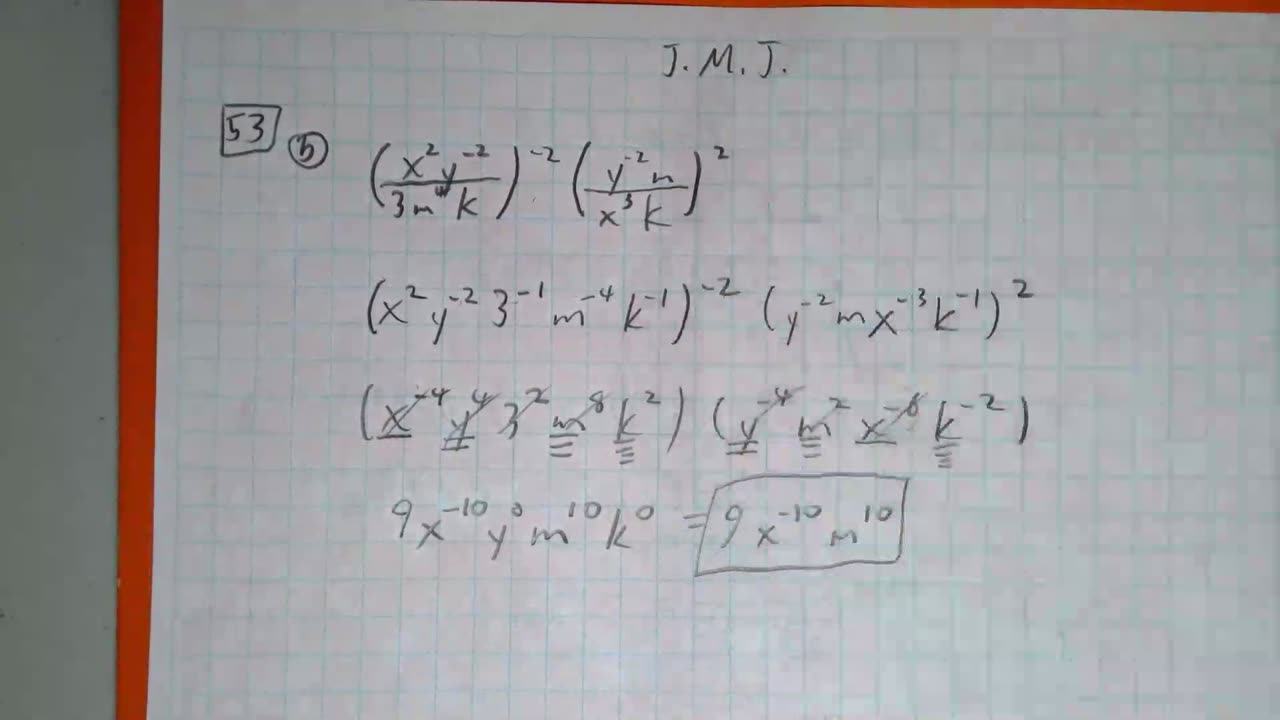 J.M.J.
53 ⑤ (x²y⁻²/3m⁴k)⁻² (y⁻²m/x³k)²
(x²y⁻²3⁻¹m⁻⁴k⁻¹)⁻² (y⁻²mx⁻³k⁻¹)²
(x⁻⁴y⁴3²m⁸k²) (y⁻⁴m²x⁻⁶k⁻²)
9x⁻¹⁰y⁰m¹⁰k⁰ = 9x⁻¹⁰m¹⁰